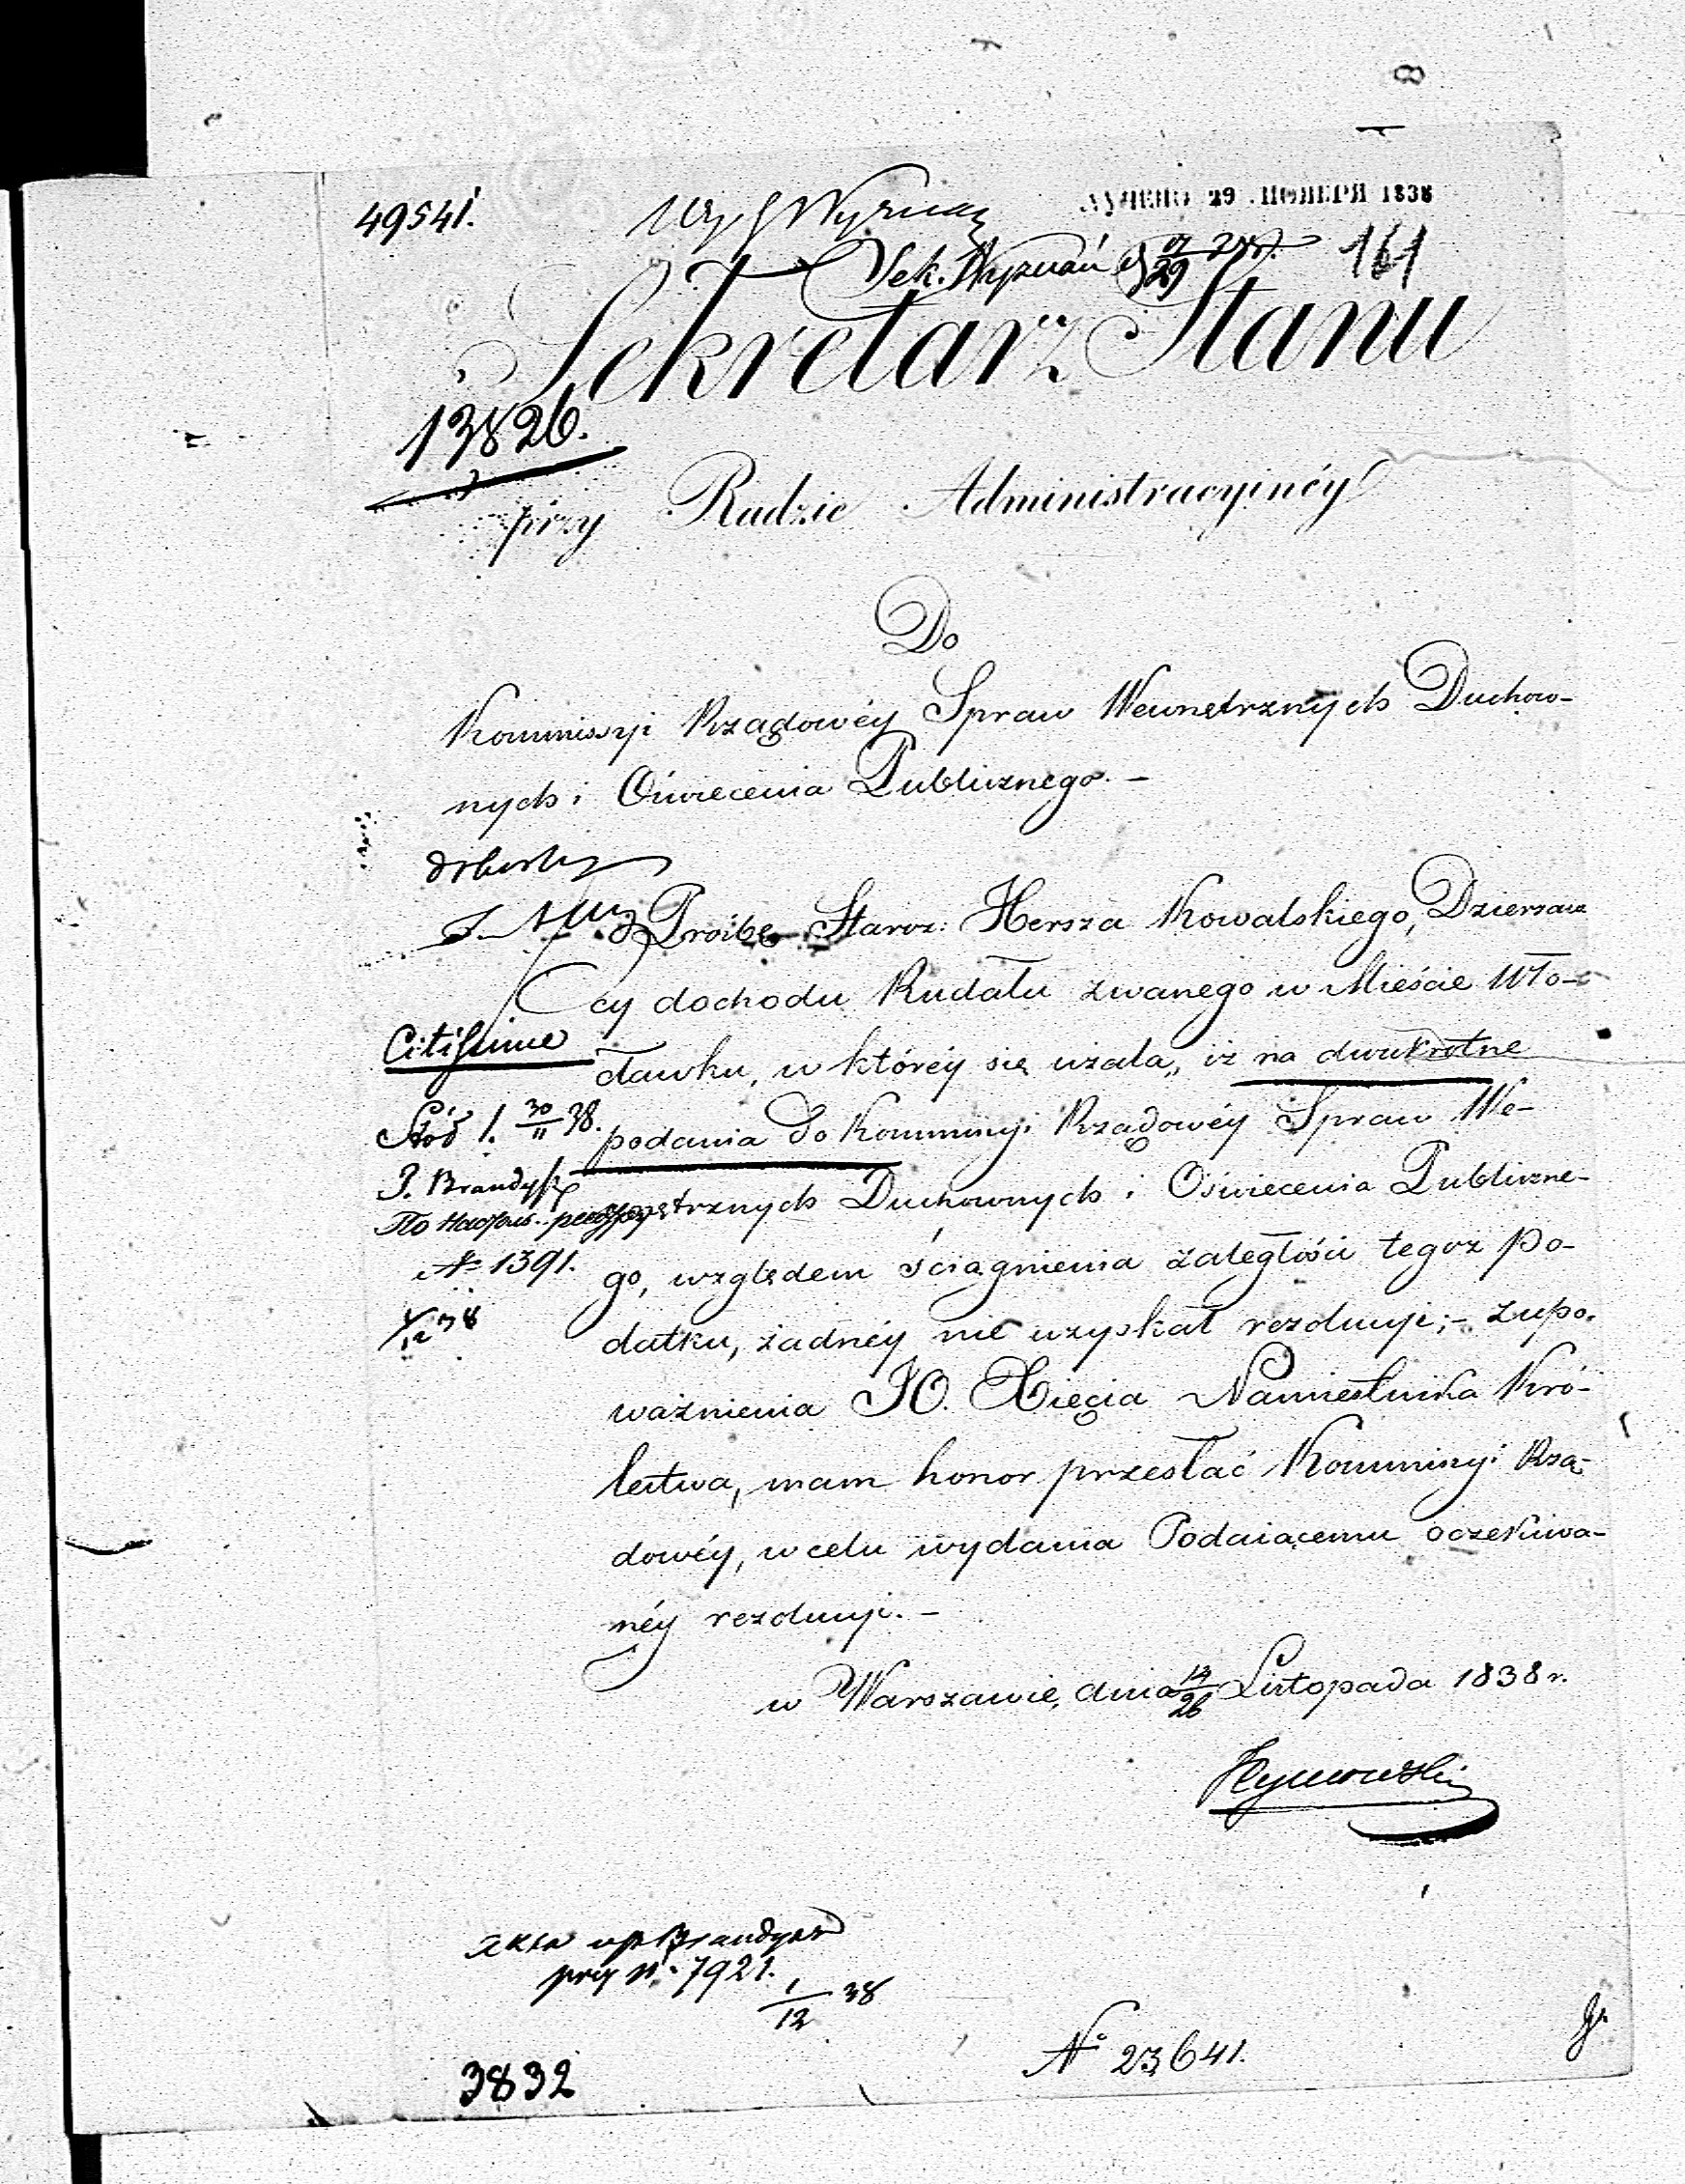 49541.
29 НОЯБРЯ 1838
Sek. Wyznań 29
161
Sekretarz Stanu
13826.
przy Radzie Administracyinéy
Do
Kommissyi Rządowéy Spraw Wewnętrznych Duchow-
nych i Oświecenia Publicznego. -
Prośbę Staroz: Hersza Kowalskiego, Dzierżaw
cy dochodu Rudału zwanego w Mieście Wło-
Citissime
dawku, w któréy się użala„ iż na dwukrotne
30/11 38.
podania do Kommissyi Rządowéy Spraw We-
P. Brandys
wnętrznych Duchownych i Oświecenia Publiczne-
№ 1391.
go, względem ściągnienia zaległości tegoż po-
1/12 38
datku, żadnéy nie uzyskał rezolucyi; - z upo-
ważnienia JO. Xięcia Namiestnika Kró-
lestwa, mam honor przesłać Kommissyi Rzą-
dowéy, w celu wydania Podaiącemu oczekiwa-
néy rezolucyi. -
w Warszawie, dnia 14/26 Listopada 1838 r.
Tymowski
akta u p. Brandysa
przy N. 7921.
1/12 38
№ 23641.
3832